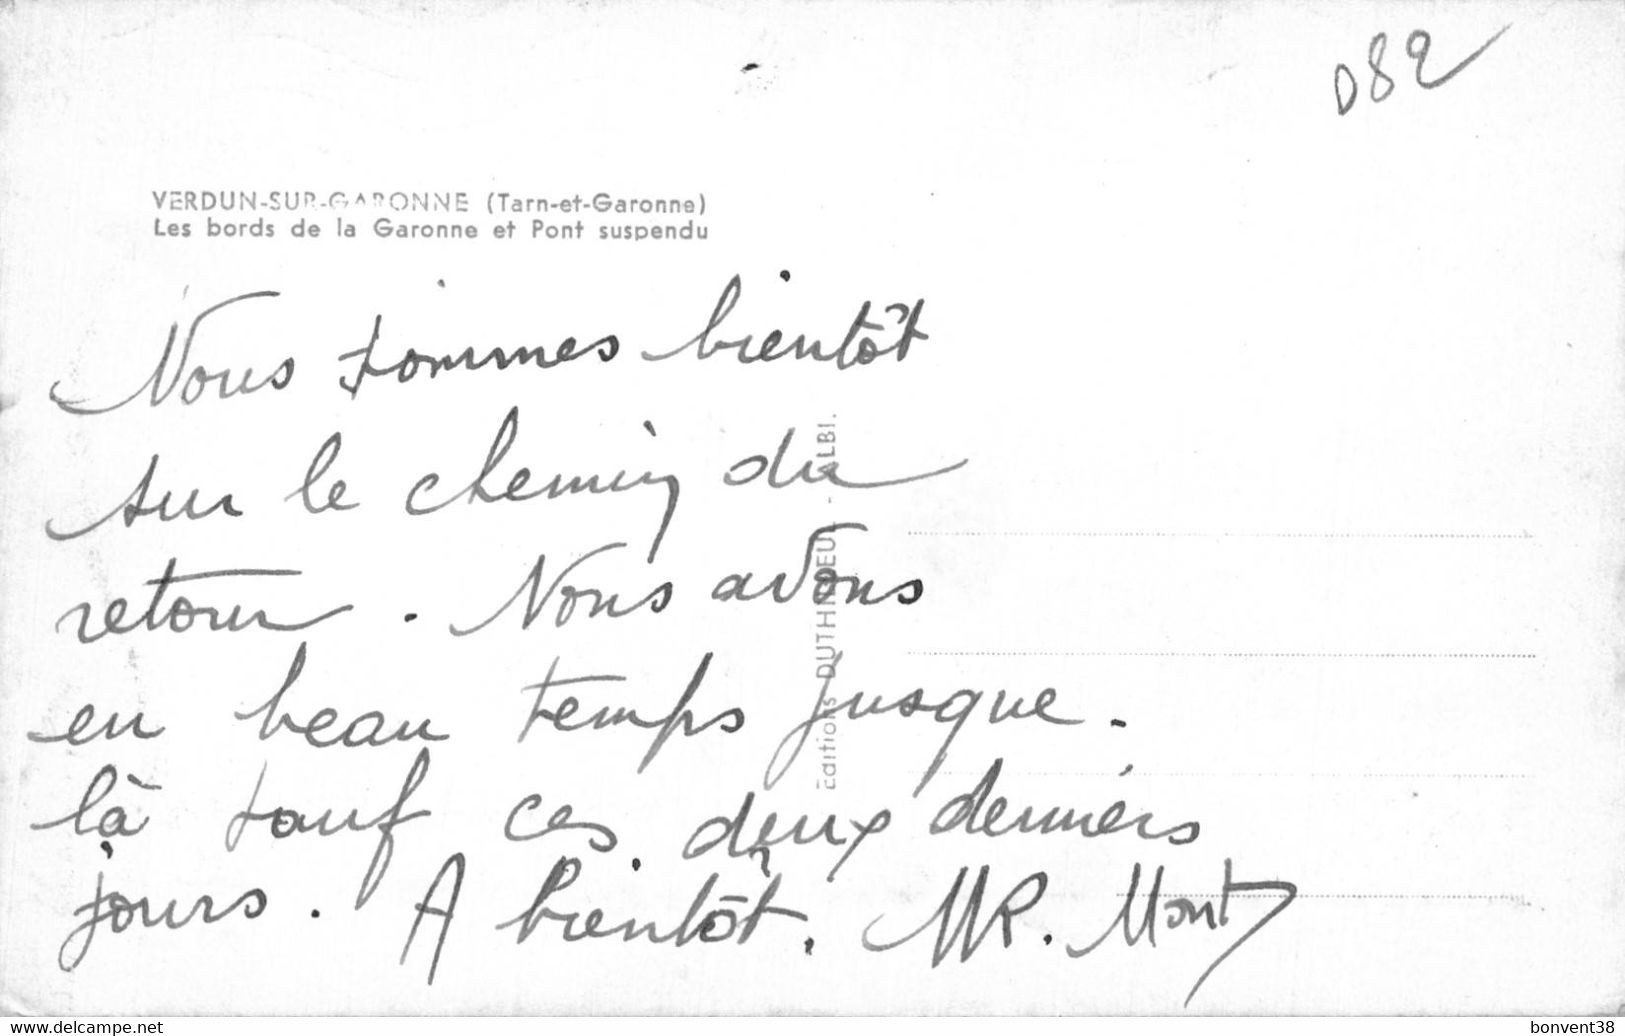 D82
VERDUN-SUR-GARONNE (Tarn-et-Garonne)
Les bords de la Garonne et Pont suspendu
Nous sommes bientôt
sur le chemin du
retour. Nous avons
eu beau temps jusque-
là sauf ces deux derniers
jours. A bientôt. MR. Mont
Editions - ALBI.
bonvent38